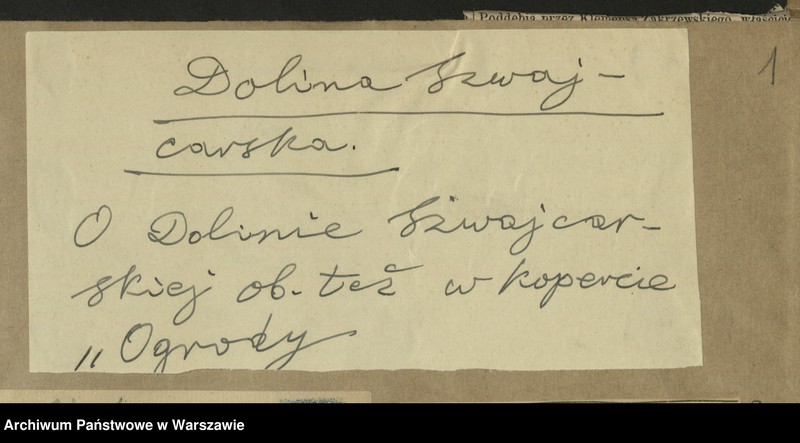 Poddębia przez Klemensa Zakrzewskiego, właścicie
1
Dolina Szwaj-
carska.
O Dolinie Szwajcar-
skiej ob. też w kopercie
„Ogrody
Archiwum Państwowe w Warszawie